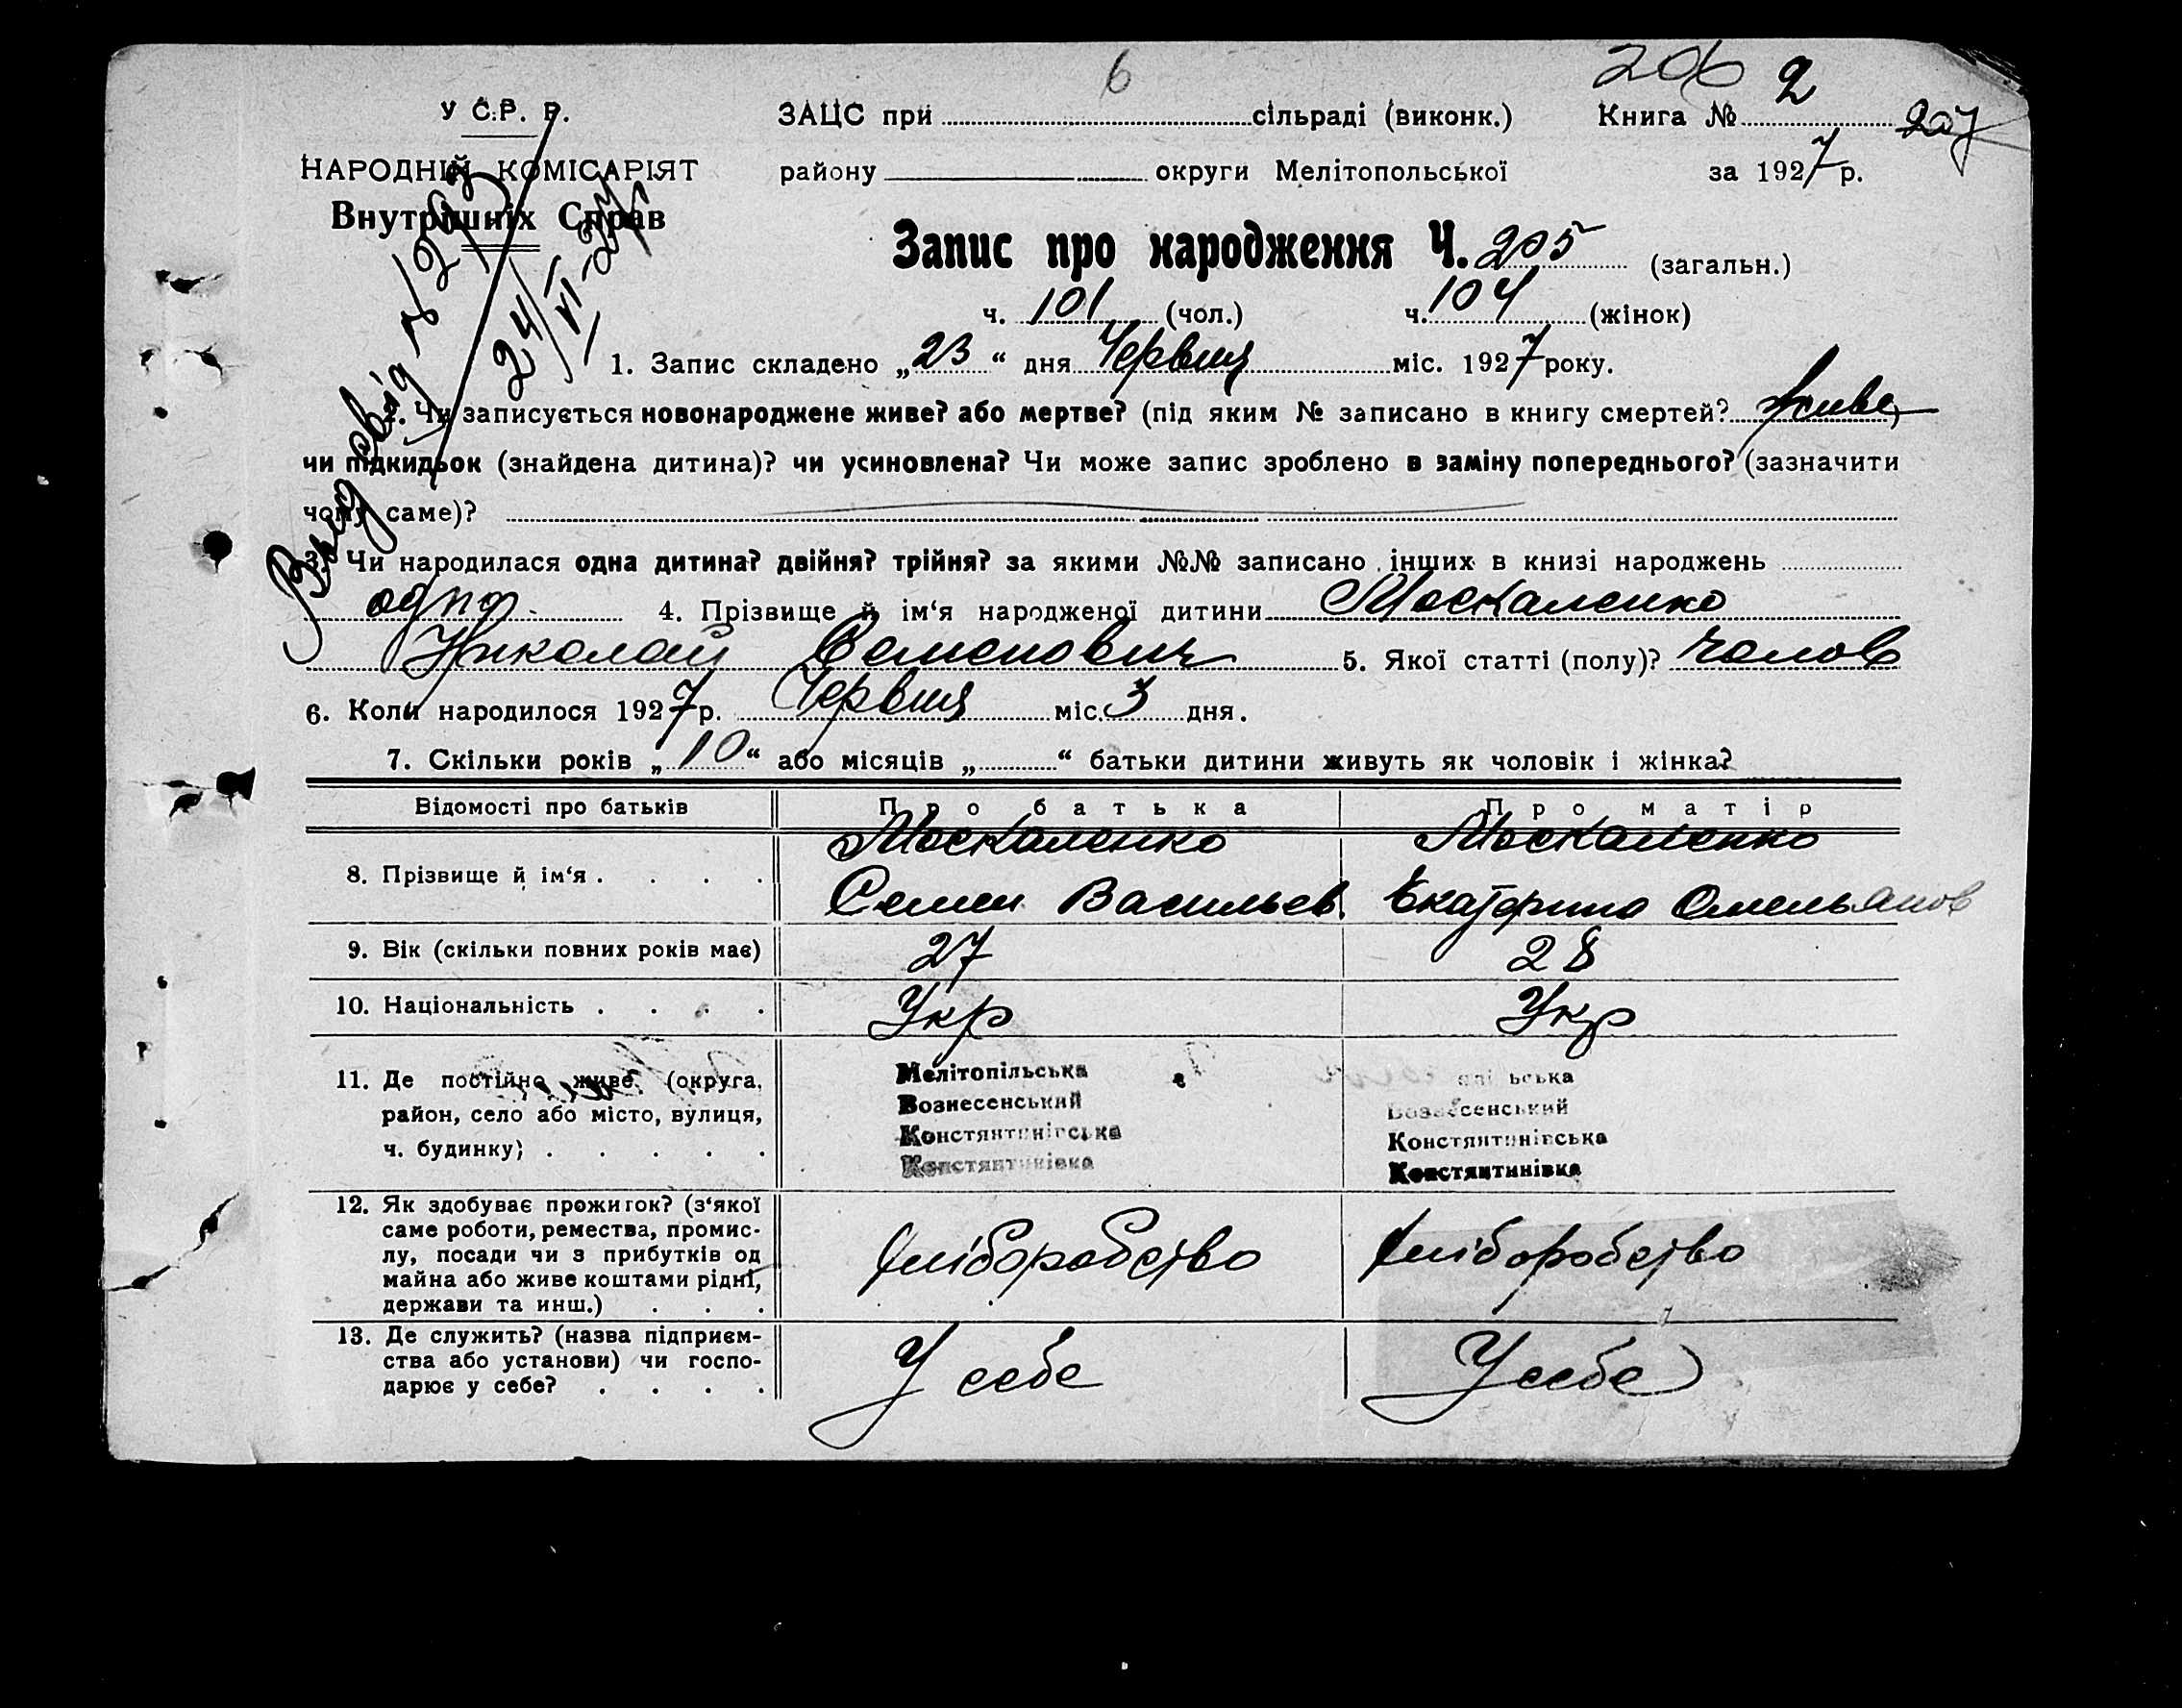 6
206
У С.Р. Р.
ЗАЦС при сільраді (виконк.) Книга № 2
207
НАРОДНІЙ КОМІСАРІЯТ
району округи Мелітопольської за 1927 р.
Внутрішніх Справ
Запис про народження Ч. 205 (загальн.)
ч. 101 (чол.) ч. 104 (жінок)
24/VI-27
1. Запис складено „23“ дня Червня міс. 1927 року.
Чи записується новонароджене живе? або мертве? (під яким № записано в книгу смертей? живе)
чи підкидьок (знайдена дитина)? чи усиновлена? Чи може запис зроблено в заміну попереднього? (зазначити
чому саме)?
3. Чи народилася одна дитина? двійня? трійня? за якими №№ записано інших в книзі народжень
одна 4. Прізвище й ім‘я народженої дитини Москаленко
Николай Семенович 5. Якої статті (полу)? чолов
6. Коли народилося 1927 р. Червня міс. 3 дня.
7. Скільки років „10“ або місяців „ “ батьки дитини живуть як чоловік і жінка?
Відомості про батьків Про батька Про матір
8. Прізвище й ім‘я . . . . Москаленко Семен Васильев. Москаленко Екатерина Омельянов
9. Вік (скільки повних років має) 27 28
10. Національність . . . . Укр Укр
11. Де постійно живе (округа, Мелітопільська
район, село або місто, вулиця, Вознесенський Вознесенський
ч. будинку) . . . . . Констянтинівська Констянтинівська
Констянтинівка Констянтинівка
12. Як здобуває прожиток? (з‘якої
саме роботи, ремества, промис-
лу, посади чи з прибутків од
майна або живе коштами рідні,
держави та инш.) . . .
хліборобство хліборобство
13. Де служить? (назва підприєм-
ства або установи) чи госпо-
дарює у себе? . . . .
У себе У себе